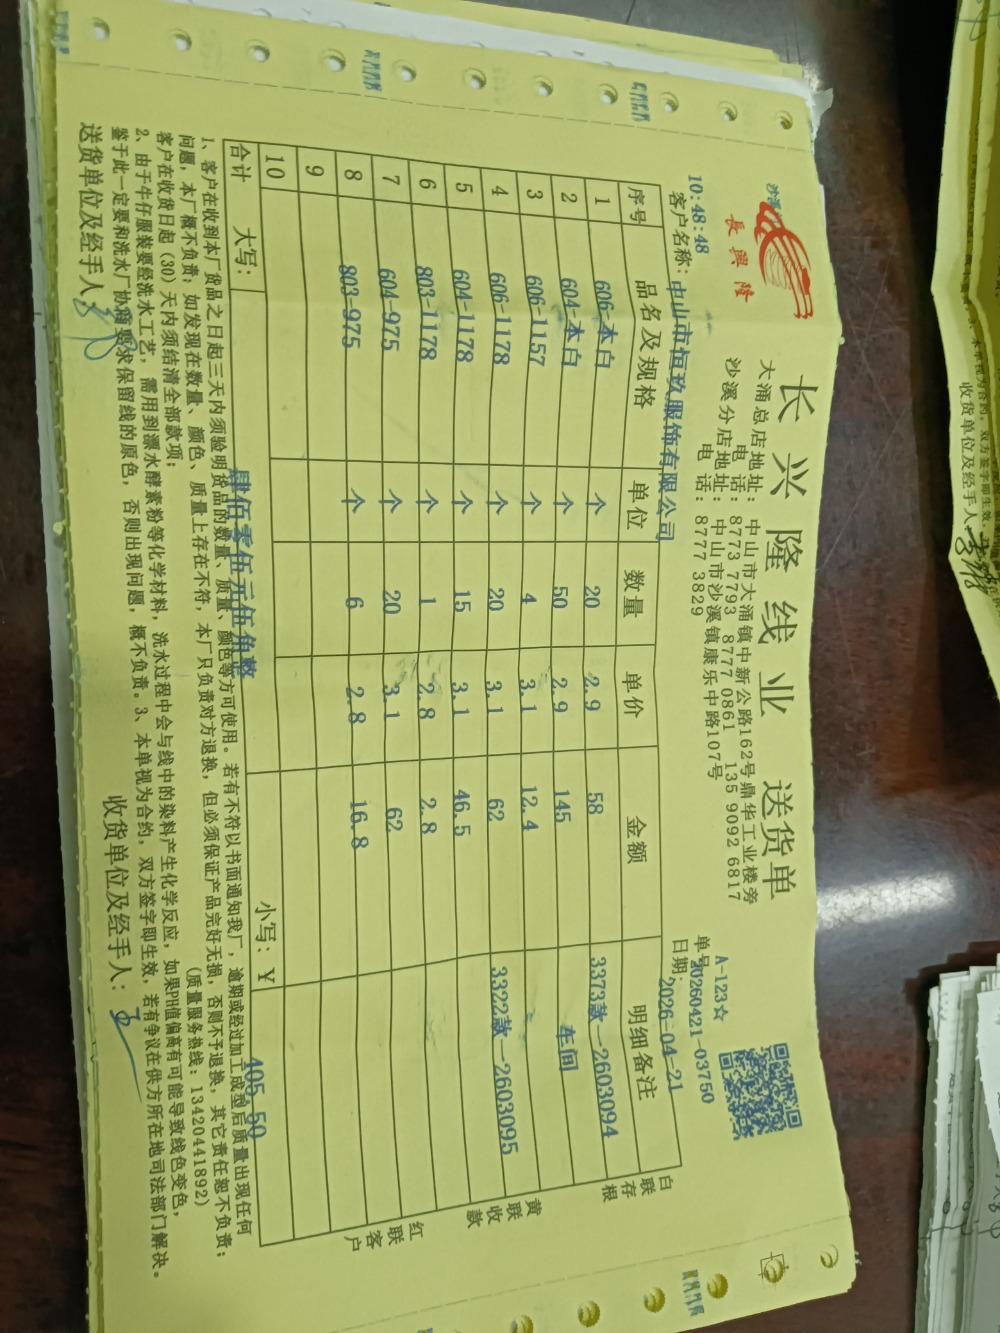 長興隆
长兴隆线业 送货单
大涌总店地址：中山市大涌镇中新公路162号鼎华工业楼旁
电话：8773 7793 8777 0861 135 9092 6817
沙溪分店地址：中山市沙溪镇康乐中路107号
电话：8777 3829
A-123☆
单号 20260421-03750
10:48:48
客户名称：中山市恒玖服饰有限公司 日期：2026-04-21
序号 品名及规格 单位 数量 单价 金额 明细备注
1 606-本白 个 20 2.9 58 3373款—2603094
2 604-本白 个 50 2.9 145 车间
3 606-1157 个 4 3.1 12.4
4 606-1178 个 20 3.1 62 3322款—2603095
5 604-1178 个 15 3.1 46.5
6 803-1178 个 1 2.8 2.8
7 604-975 个 20 3.1 62
8 803-975 个 6 2.8 16.8
9
10
合计 大写：肆佰零伍元伍角整 小写：￥405.50
白联存根
黄联收款
红联客户
1、客户在收到本厂货品之日起三天内须验明货品的数量、质量、颜色等方可使用。若有不符以书面通知我厂，逾期或经过加工成型后质量出现任何
问题，本厂概不负责；如发现在数量、颜色、质量上存在不符，本厂只负责对方退换，但必须保证产品完好无损，否则不予退换，其它责任恕不负责；
客户在收货日起（30）天内须结清全部款项； （质量服务热线：13420441892）
2、由于牛仔服装要经洗水工艺，需用到漂水酵素粉等化学材料，洗水过程中会与线中的染料产生化学反应，如果PH值偏高有可能导致线色变色，
鉴于此一定要和洗水厂协商要求保留线的原色，否则出现问题，概不负责。3、本单视为合约，双方签字即生效，若有争议在供方所在地司法部门解决。
送货单位及经手人： 收货单位及经手人：
收货单位及经手人